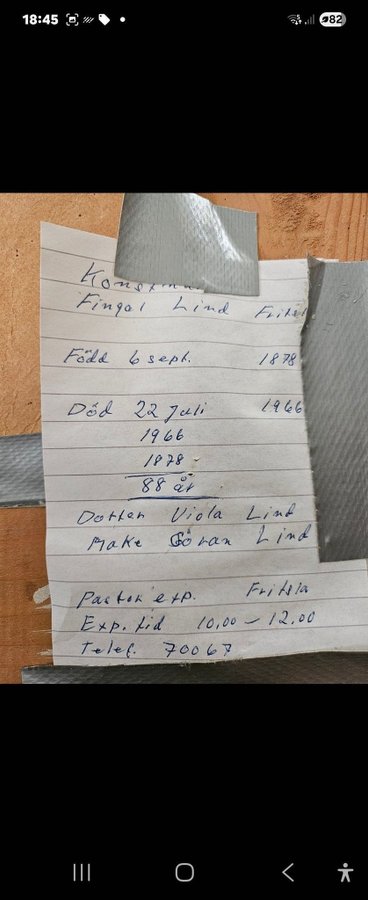 18:45
82
Fingal Lind Fritsla
Född 6 sept. 1878
Död 22 Juli 1966
1966
1878
88 år
Dotter Viola Lind
Make Göran Lind
Pastor exp. Fritsla
Exp. tid 10,00 – 12.00
Telef. 70067